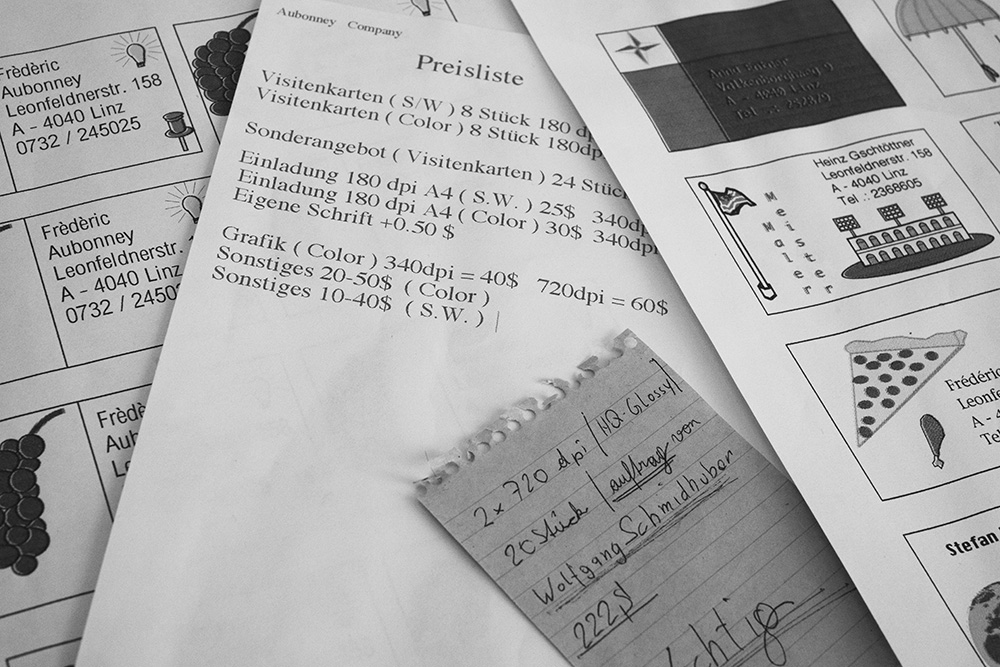 Frèdèric
Aubonney
Leonfeldnerstr. 158
A - 4040 Linz
0732 / 245025
Frèdèric
Aubonney
Leonfeldnerstr.
A - 4040 Linz
0732 / 2450
Frèdè
Aub
Aubonney Company
Preisliste
Visitenkarten ( S/W ) 8 Stück 180 d
Visitenkarten ( Color ) 8 Stück 180dp
Sonderangebot ( Visitenkarten ) 24 Stück
Einladung 180 dpi A4 ( S.W. ) 25$ 340d
Einladung 180 dpi A4 ( Color ) 30$ 340dpi
Eigene Schrift +0.50 $
Grafik ( Color ) 340dpi = 40$ 720dpi = 60$
Sonstiges 20-50$ ( Color )
Sonstiges 10-40$ ( S.W. )
2x 720 dpi (HQ-Glossy)
20 Stück auftrag von
Wolfgang Schmidhuber
222$
chtig
A - 4040 Linz
Heinz Gschtöttner
Leonfeldnerstr. 158
A - 4040 Linz
Tel .: 2368605
Meister
Maler
Frédéric
Leonfe
A - 4
Te
Stefan